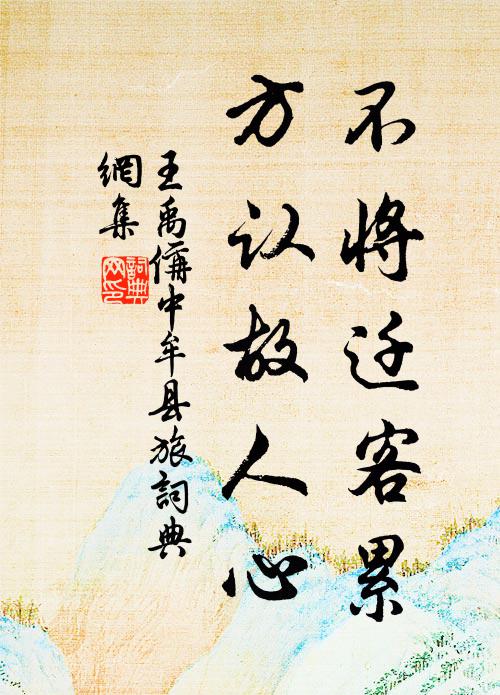 不将迁客累
方认故人心
王禹偁中牟县旅詞典
網集
詞典
网印